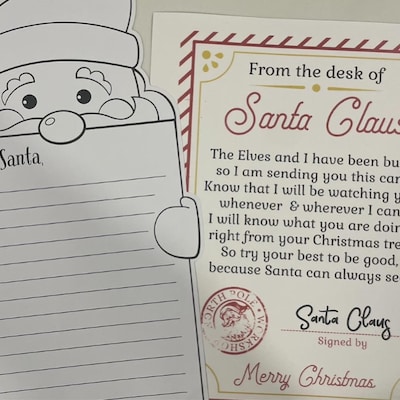 Santa,
From the desk of
Santa Claus
The Elves and I have been bu
so I am sending you this can
Know that I will be watching y
whenever & wherever I can
I will know what you are doin
right from your Christmas tre
So try your best to be good,
because Santa can always se
NORTH POLE
WORKSHOP
Santa Claus
Signed by
Merry Christmas